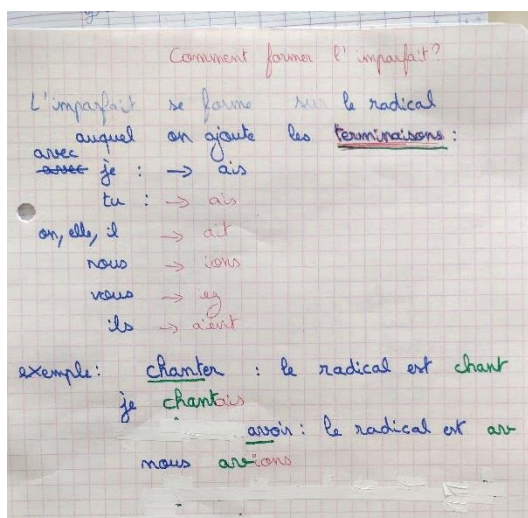 Comment former l'imparfait?
L'imparfait se forme sur le radical
auquel on ajoute les terminaisons :
avec
avec je : → ais
tu : → ais
on, elle, il → ait
nous → ions
vous → ez
ils → aient
exemple: chanter : le radical est chant
je chantais
avoir : le radical est av
nous avions